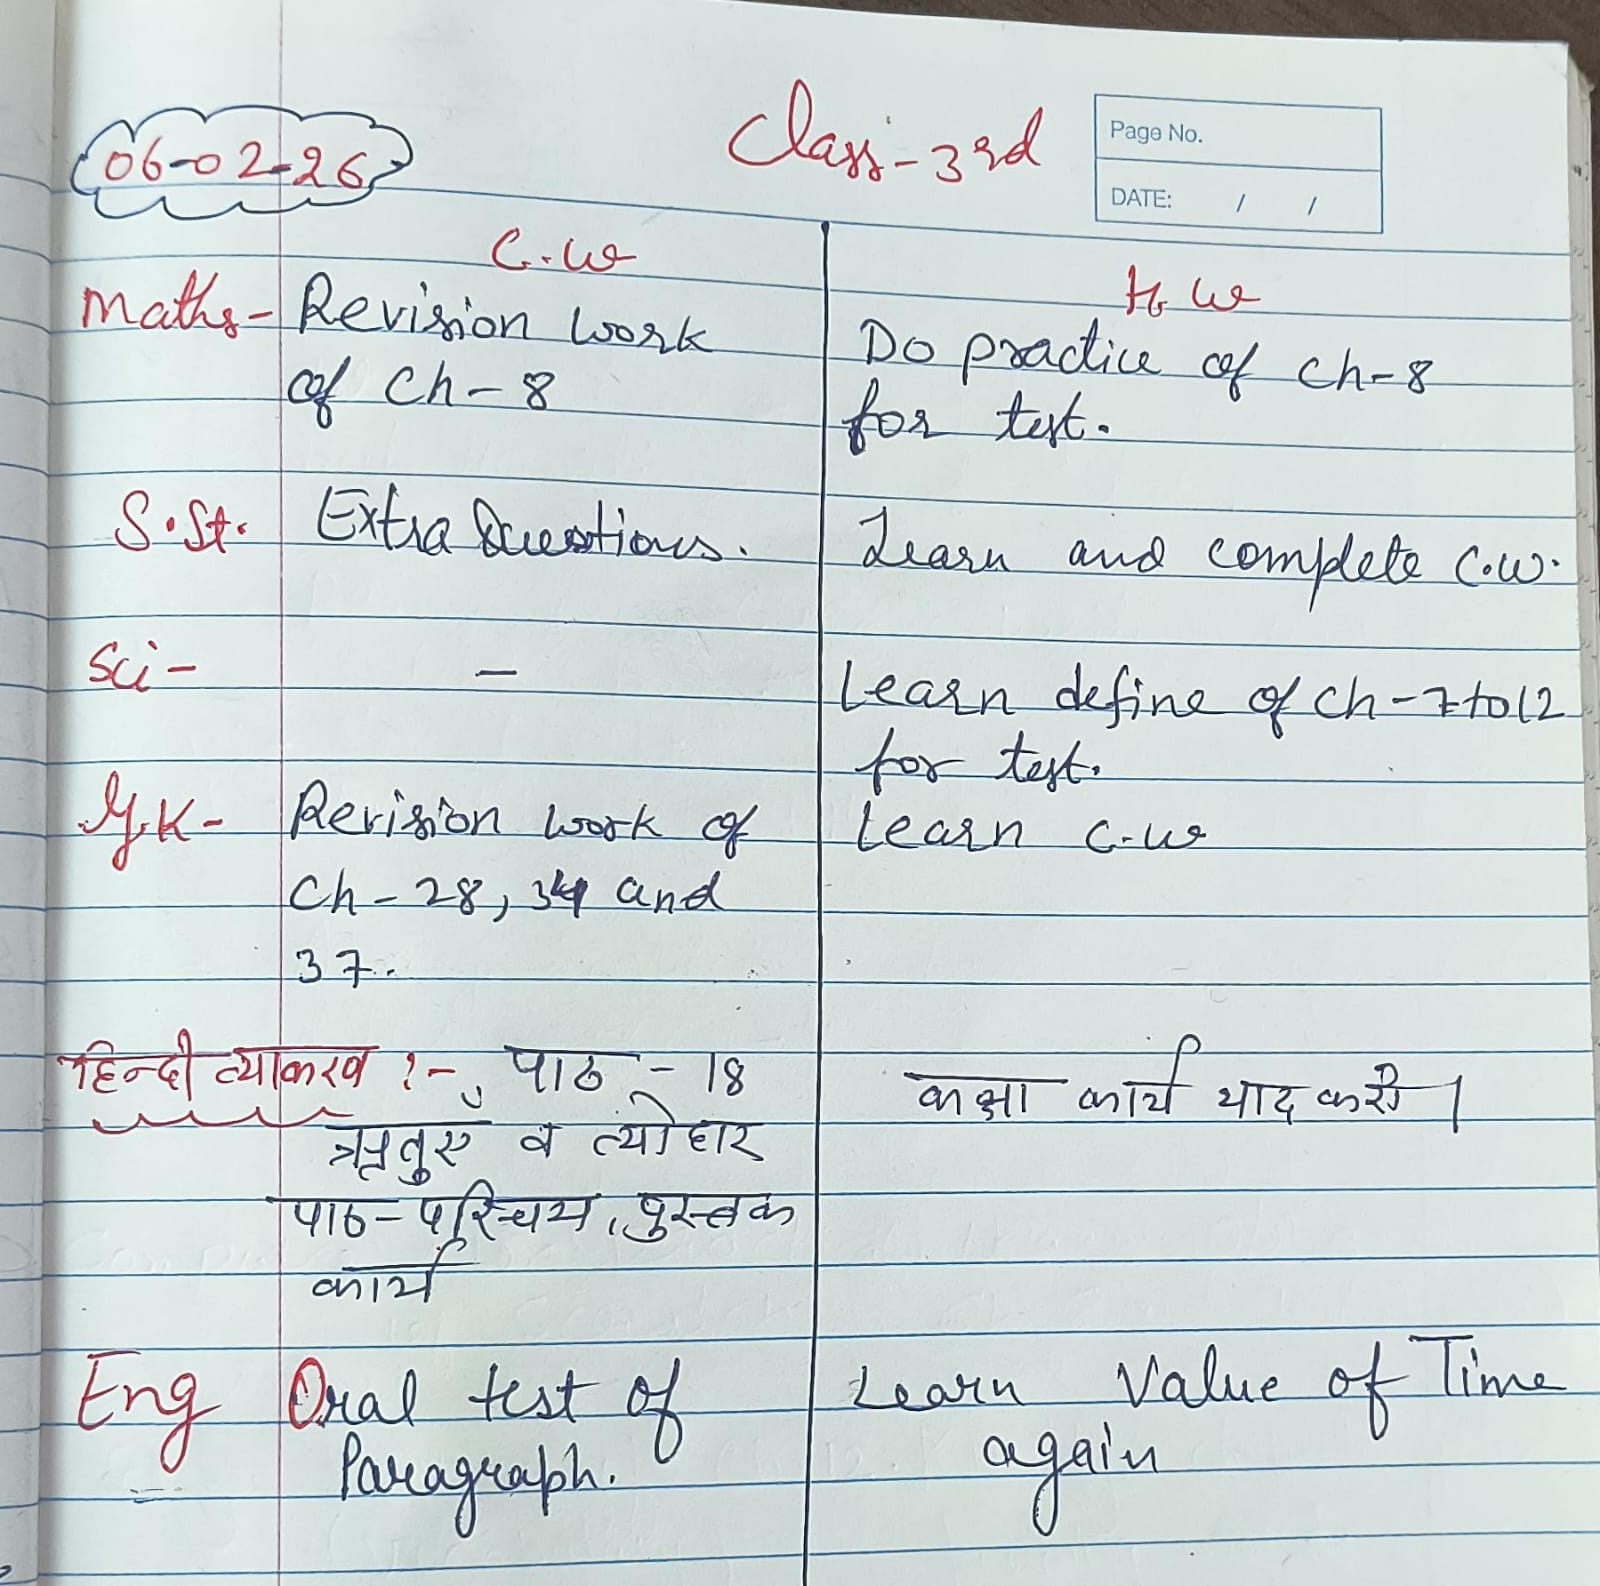 06-02-26
Class-3rd
Page No.
DATE: / /
C.W
H.W
Maths- Revision work
of Ch-8
Do practice of Ch-8
for test.
S.St. Extra Questions.
Learn and complete C.W.
Sci- -
Learn define of Ch-7 to 12
for test.
G.K- Revision work of
Ch-28, 34 and
37.
Learn C.W
हिन्दी व्याकरण :- पाठ - 18
ऋतुएँ व त्योहार
पाठ-परिचय, पुस्तक
कार्य
कक्षा कार्य याद करो।
Eng Oral test of
Paragraph.
Learn Value of Time
again